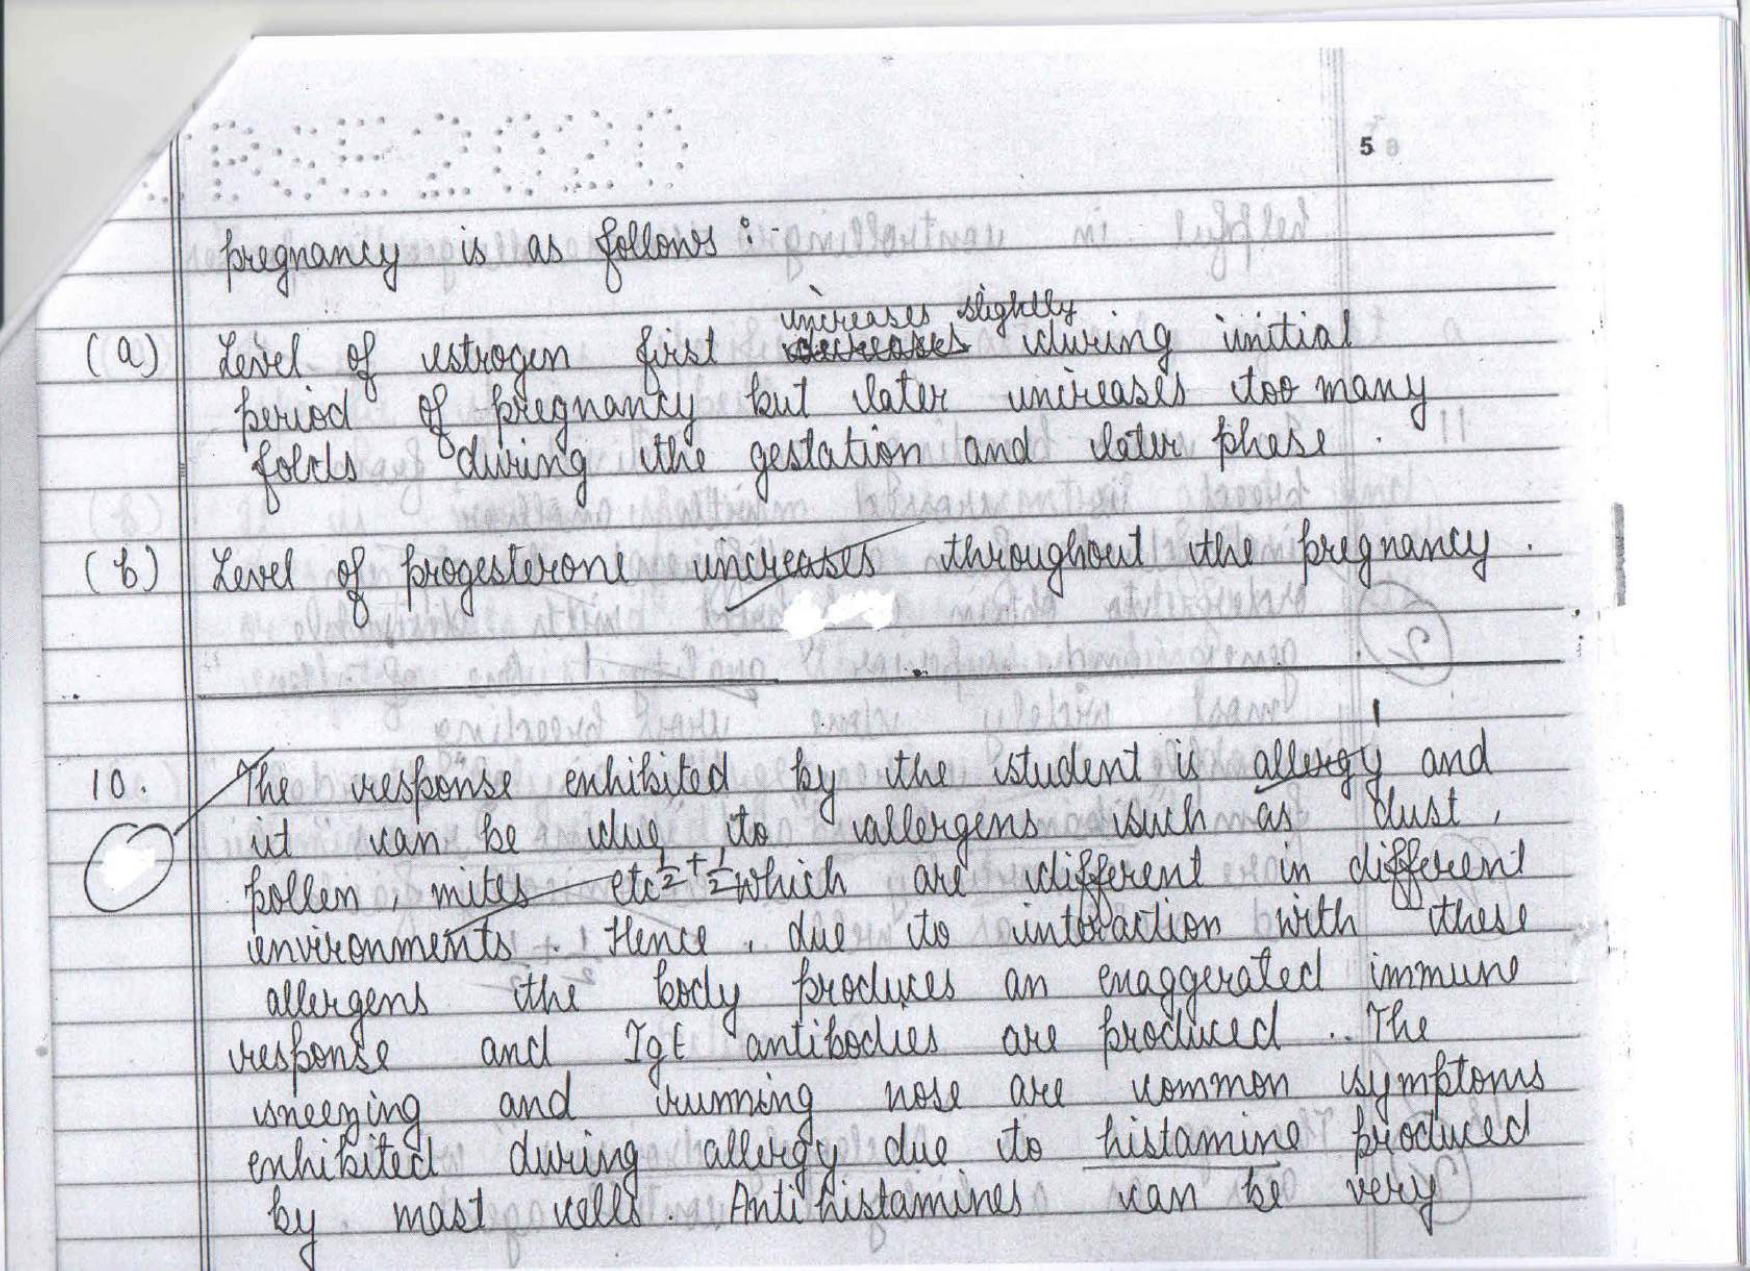 BSE2020
5
pregnancy is as follows :-
increases slightly
(a) Level of estrogen first decreases during initial
period of pregnancy but later increases too many
folds during the gestation and later phase.
(b) Level of progesterone increases throughout the pregnancy.
1
10. The response exhibited by the student is allergy and
it can be due to allergens such as dust,
pollen, mites etc ½+½ which are different in different
environments. Hence, due to interaction with these
allergens the body produces an exaggerated immune
response and IgE antibodies are produced. The
sneezing and running nose are common symptoms
exhibited during allergy due to histamine produced
by mast cells. Antihistamines can be very